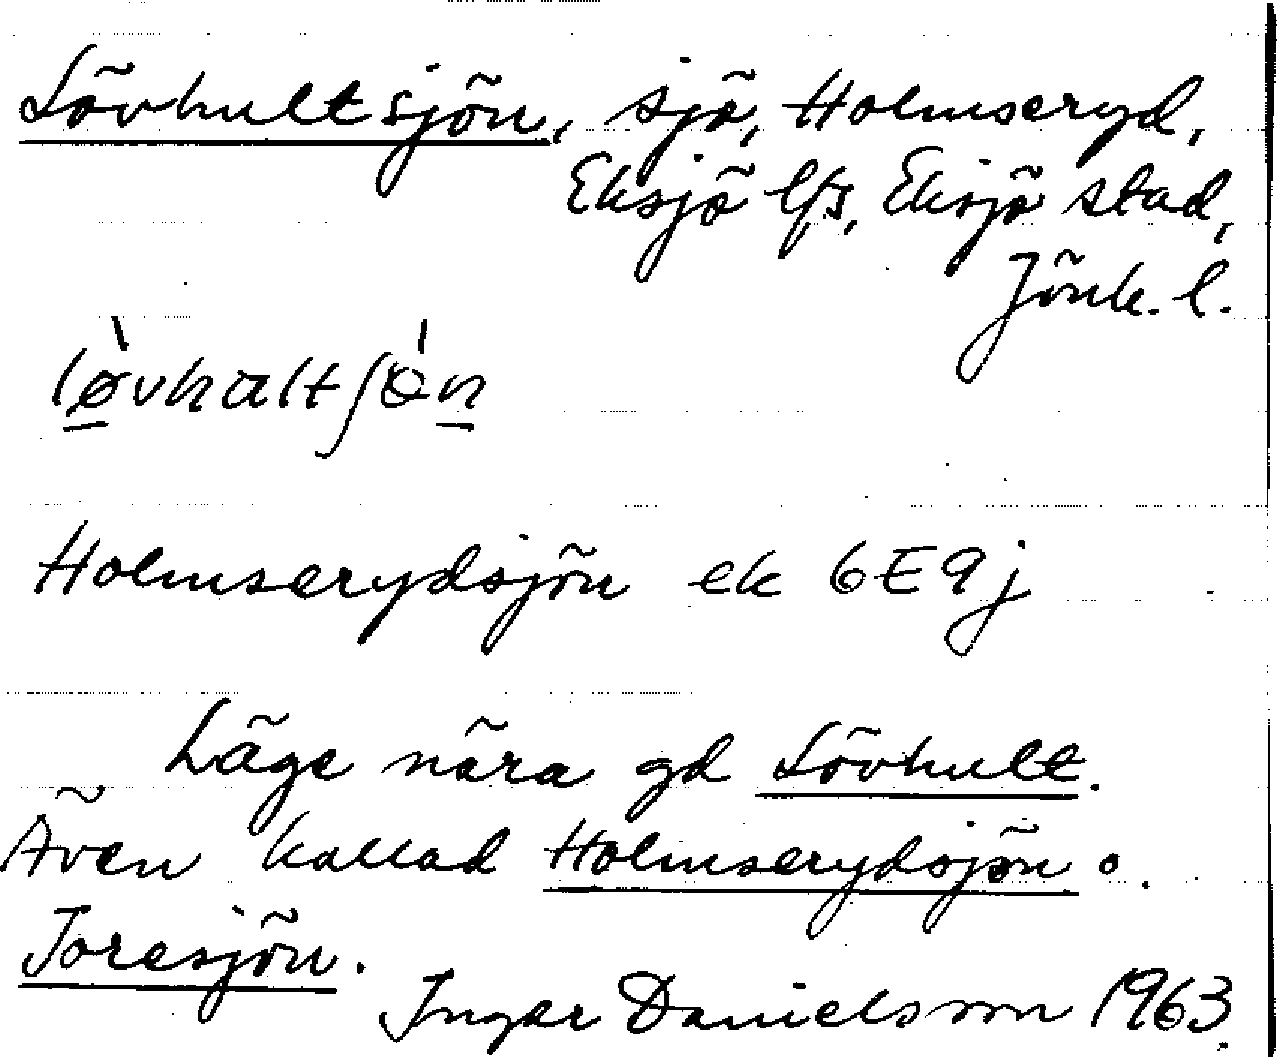 Lövhultsjön, sjö, Holmseryd,
Eksjö lfs, Eksjö stad,
Jönk. l.
lø̀vhaltʃǿn
Holmserydsjön ek 6E9j
Läge nära gd Lövhult.
Även kallad Holmserydsjön o.
Toresjön.
Ingar Danielsson 1963